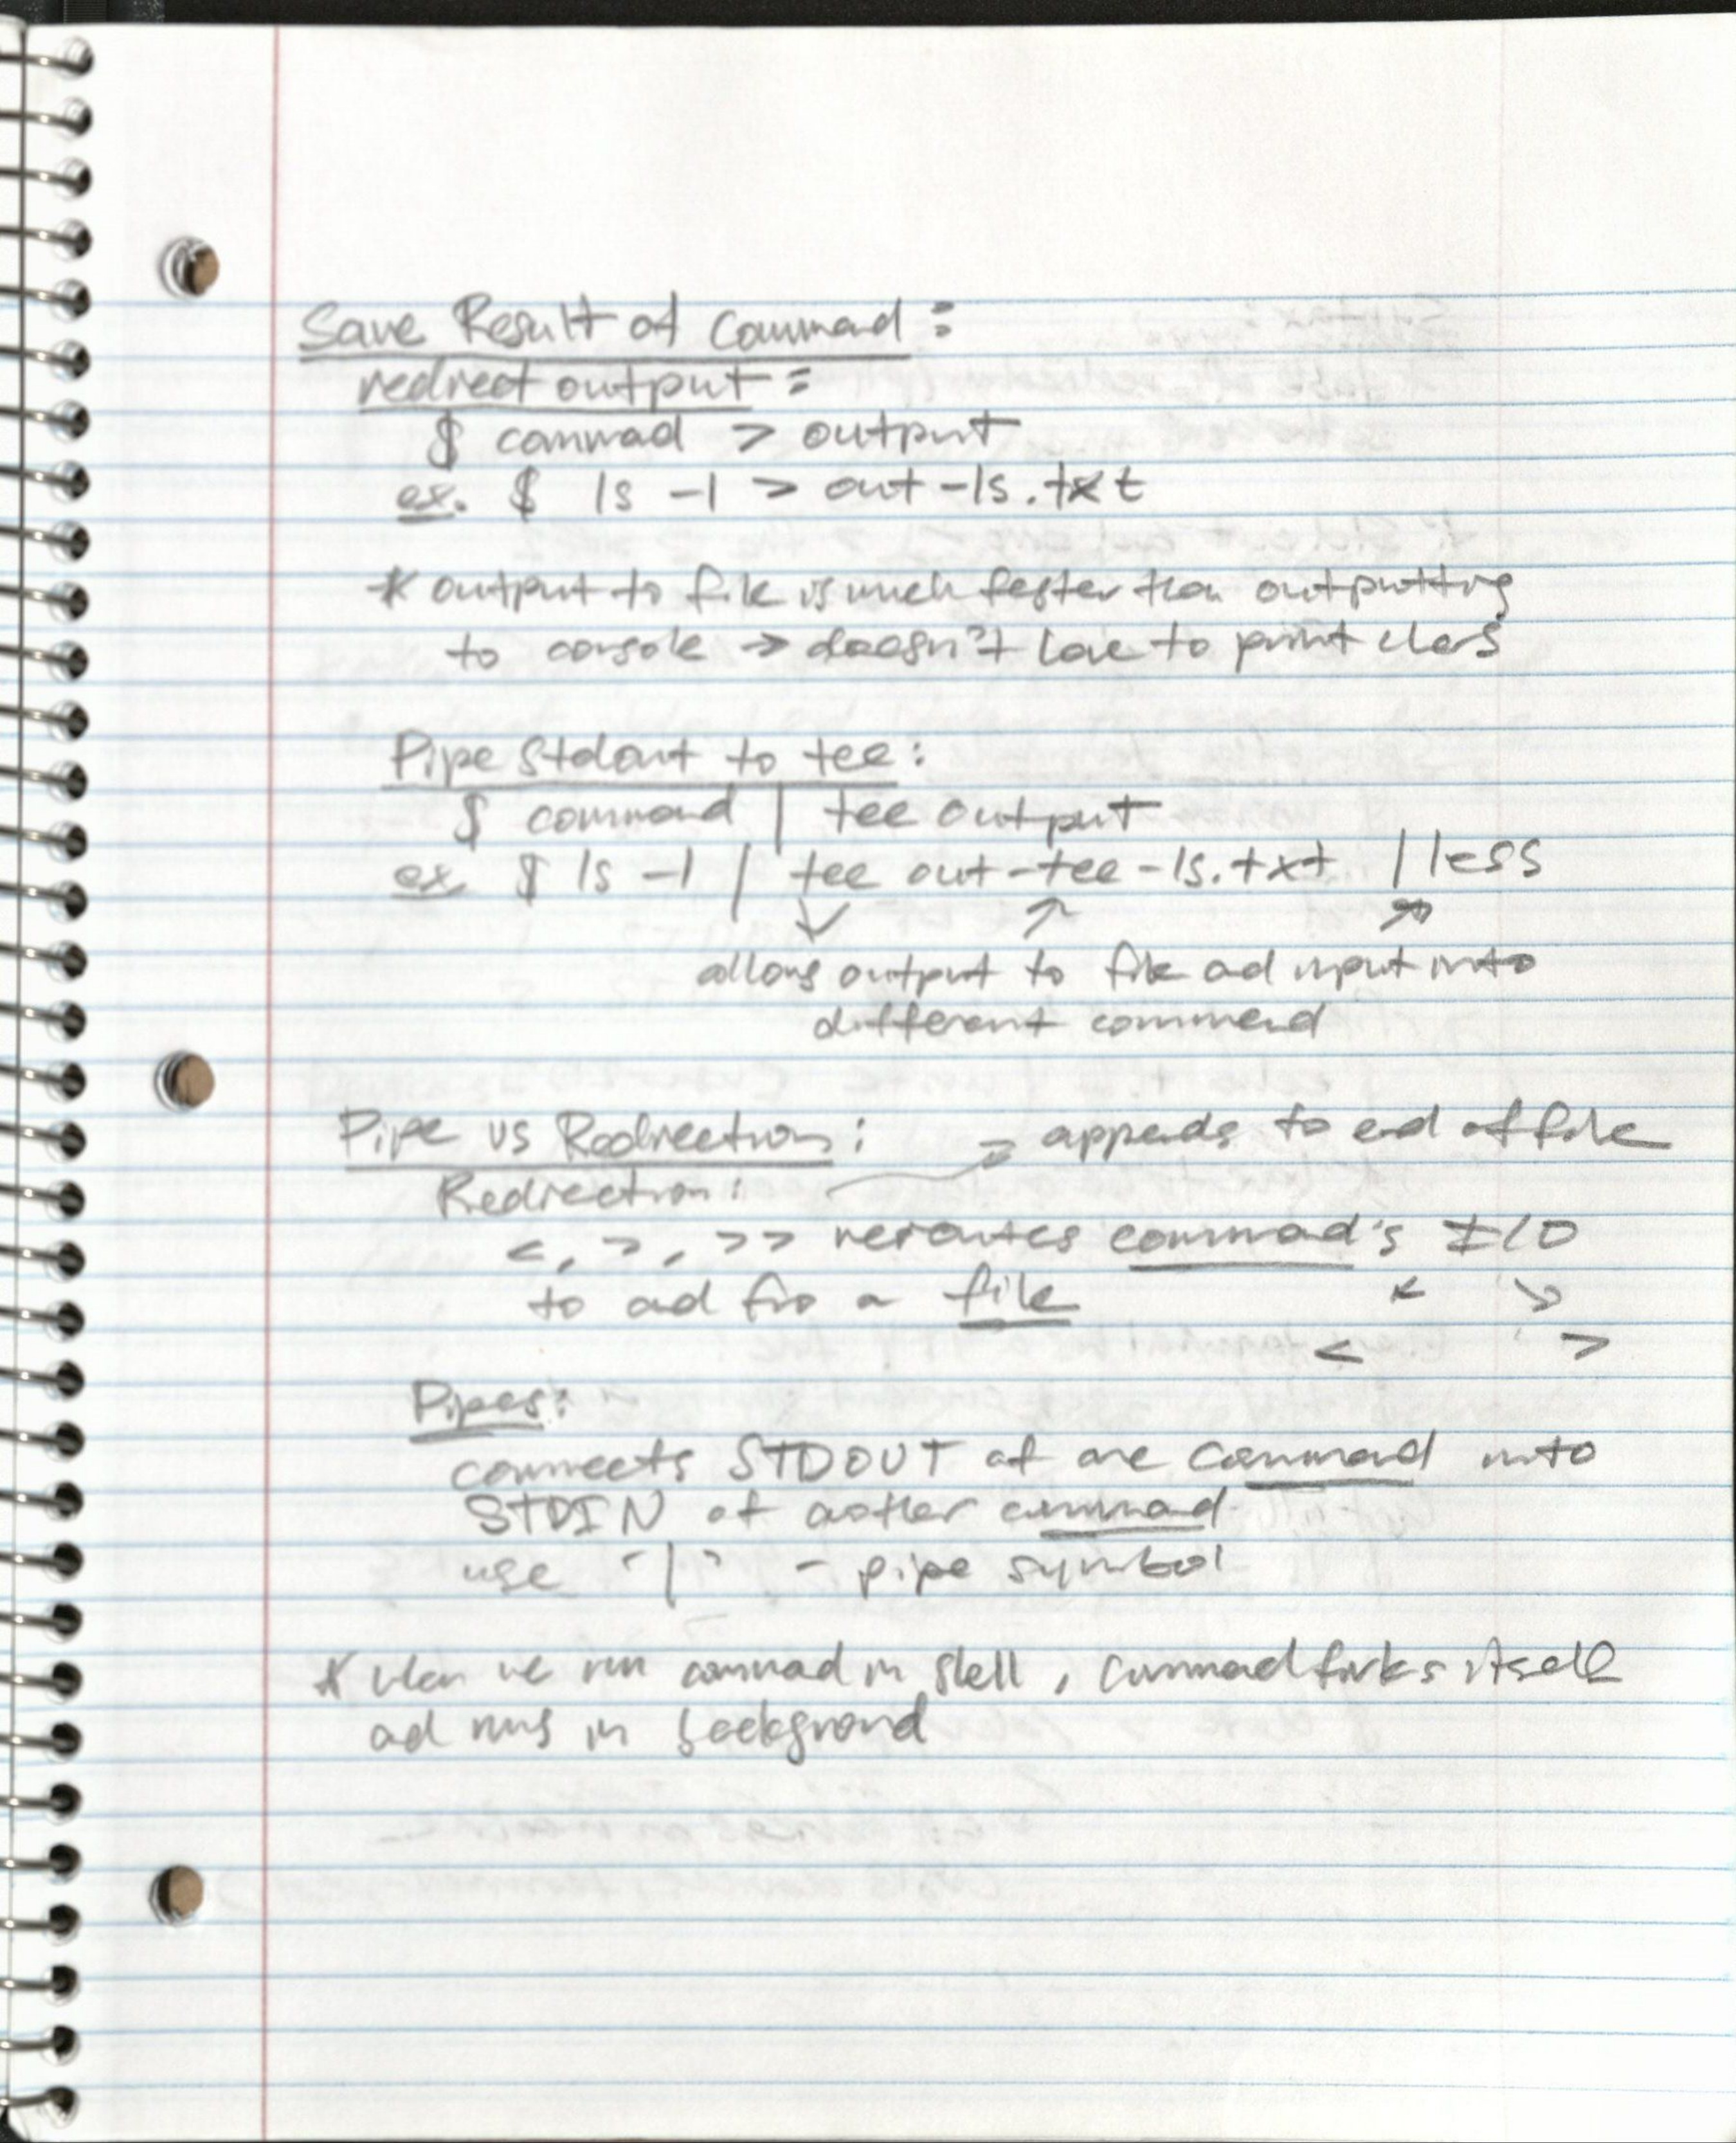 Save Result of Command:
redirect output:
$ command > output
ex. $ ls -l > out-ls.txt
* output to file is much faster than outputting
to console → doesn't have to print chars
Pipe Stdout to tee:
$ command | tee output
ex $ ls -l | tee out-tee-ls.txt | less
allows output to file and input into
different command
Pipe vs Redirection: → appends to end of file
Redirection:
<, >, >> reroutes command's I/O
to and fro a file
< >
Pipes:
connects STDOUT of one command into
STDIN of another command
use "|" - pipe symbol
* when we run command in shell, command forks itself
and runs in background